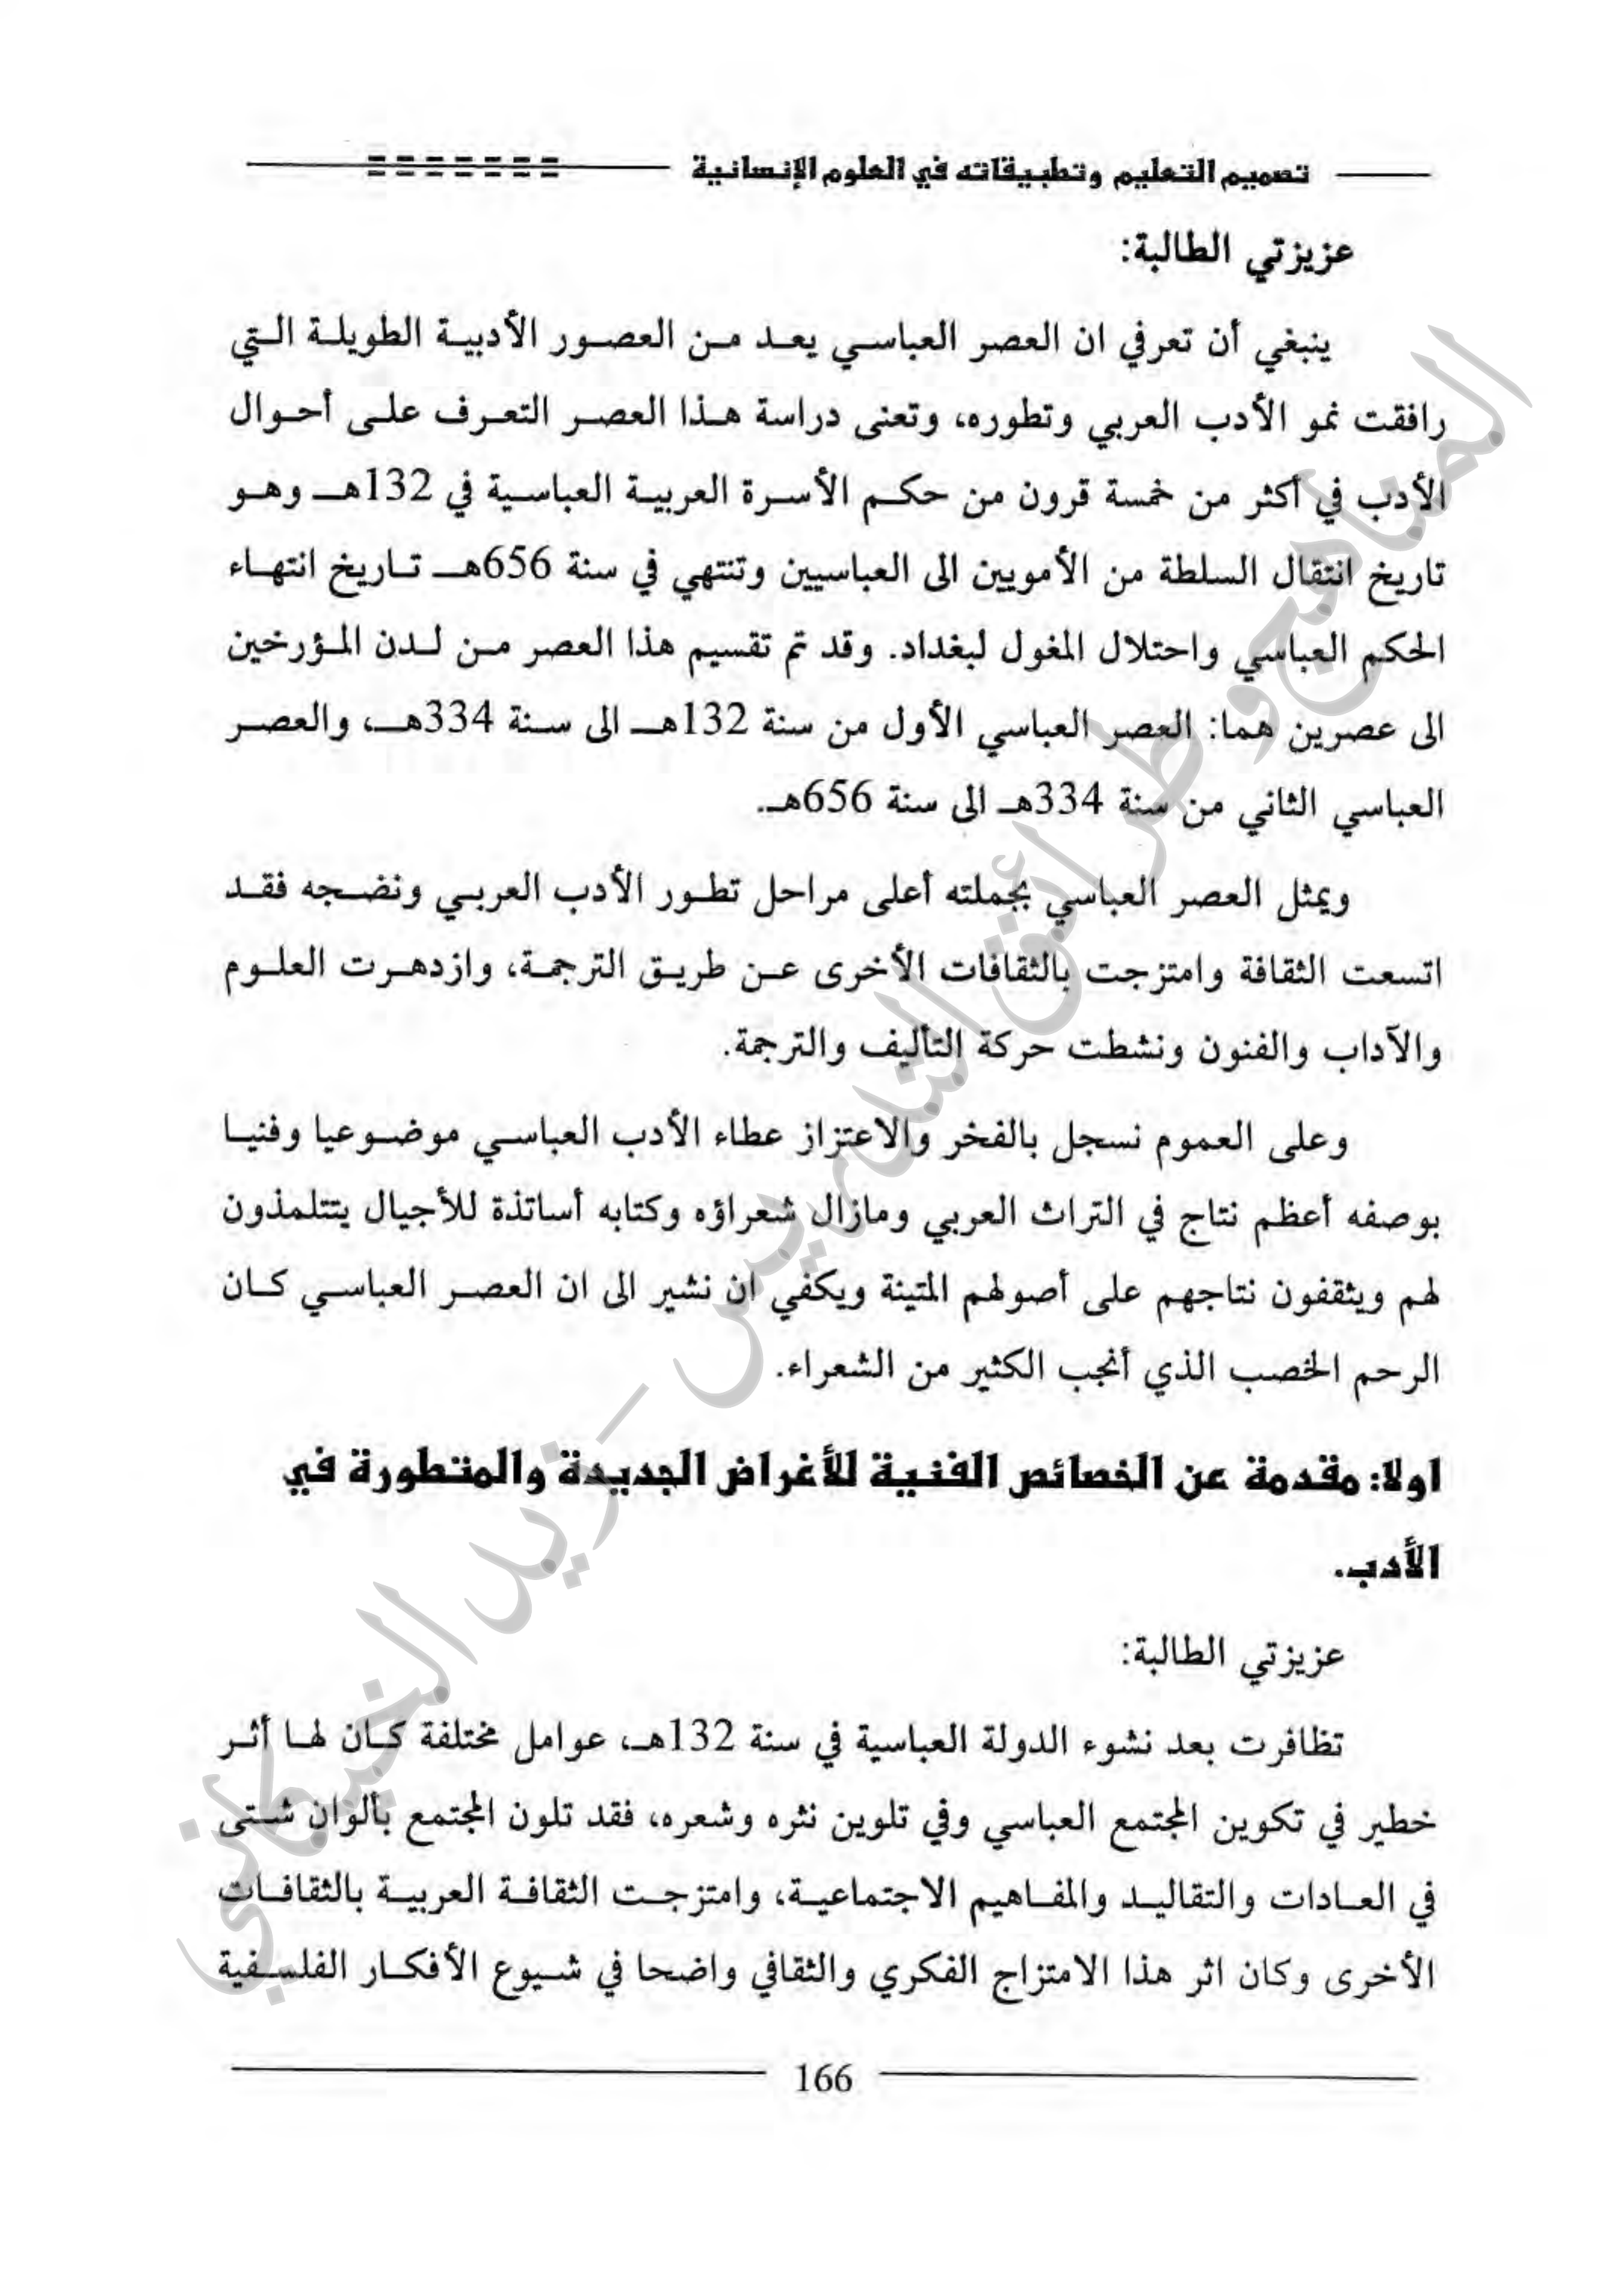 تصميم التعليم وتطبيقاته في العلوم الإنسانية
عزيزتي الطالبة:
ينبغي أن تعرفي ان العصر العباسي يعد من العصور الأدبية الطويلة التي
رافقت نمو الأدب العربي وتطوره، وتعنى دراسة هذا العصر التعرف على أحوال
الأدب في أكثر من خمسة قرون من حكم الأسرة العربية العباسية في 132هـ وهو
تاريخ انتقال السلطة من الأمويين الى العباسيين وتنتهي في سنة 656هـ تاريخ انتهاء
الحكم العباسي واحتلال المغول لبغداد. وقد تم تقسيم هذا العصر من لدن المؤرخين
الى عصرين هما: العصر العباسي الأول من سنة 132هـ الى سنة 334هـ، والعصر
العباسي الثاني من سنة 334هـ الى سنة 656هـ.
ويمثل العصر العباسي بجملته أعلى مراحل تطور الأدب العربي ونضجه فقد
اتسعت الثقافة وامتزجت بالثقافات الأخرى عن طريق الترجمة، وازدهرت العلوم
والآداب والفنون ونشطت حركة التأليف والترجمة.
وعلى العموم نسجل بالفخر والاعتزاز عطاء الأدب العباسي موضوعيا وفنيا
بوصفه أعظم نتاج في التراث العربي ومازال شعراؤه وكتابه أساتذة للأجيال يتتلمذون
لهم ويثقفون نتاجهم على أصولهم المتينة ويكفي ان نشير الى ان العصر العباسي كان
الرحم الخصب الذي أنجب الكثير من الشعراء.
اولا: مقدمة عن الخصائص الفنية للأغراض الجديدة والمتطورة في
الأدب.
عزيزتي الطالبة:
تظافرت بعد نشوء الدولة العباسية في سنة 132هـ، عوامل مختلفة كان لها أثر
خطير في تكوين المجتمع العباسي وفي تلوين نثره وشعره، فقد تلون المجتمع بألوان شتى
في العادات والتقاليد والمفاهيم الاجتماعية، وامتزجت الثقافة العربية بالثقافات
الأخرى وكان اثر هذا الامتزاج الفكري والثقافي واضحا في شيوع الأفكار الفلسفية
166
المناهج وطرائق التدريس - زيد الخيكاني